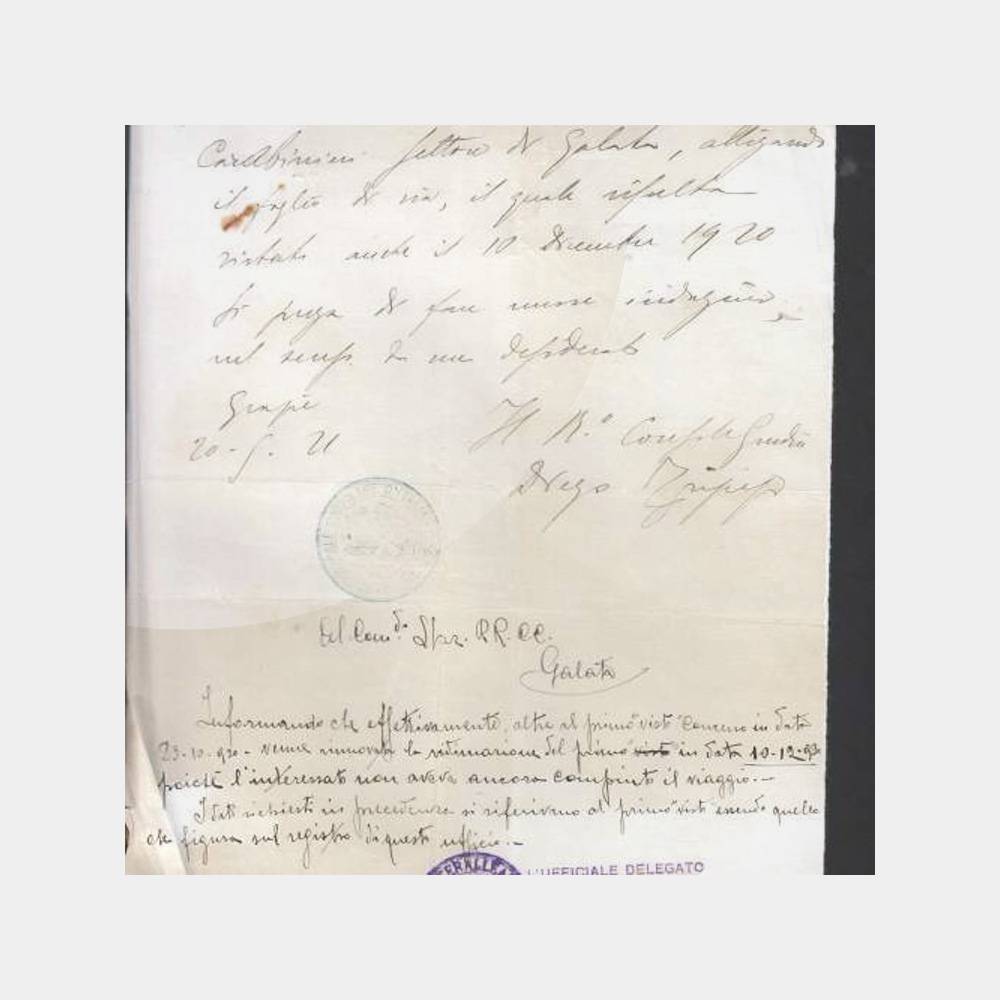 Carabinieri Settore di Galata, allegando
il foglio di via, il quale risulta
vistato anche il 10 Dicembre 1920
Si prega di fare nuove indagini
nel senso da me desiderato
20-5. 21 Il R.º Console Giudice
Diego
Al Com.do Sez. RR.CC.
Galata
Informando che effettivamente, oltre al primo "visto" concesso in data
23-10-920 - venne rinnovata la vidimazione del primo visto in data 10-12-920
poichè l'interessato non aveva ancora compiuto il viaggio.-
I dati richiesti in precedenza si riferivano al primo "visto" essendo quello
che figura sul registro di questo ufficio.-
L'UFFICIALE DELEGATO